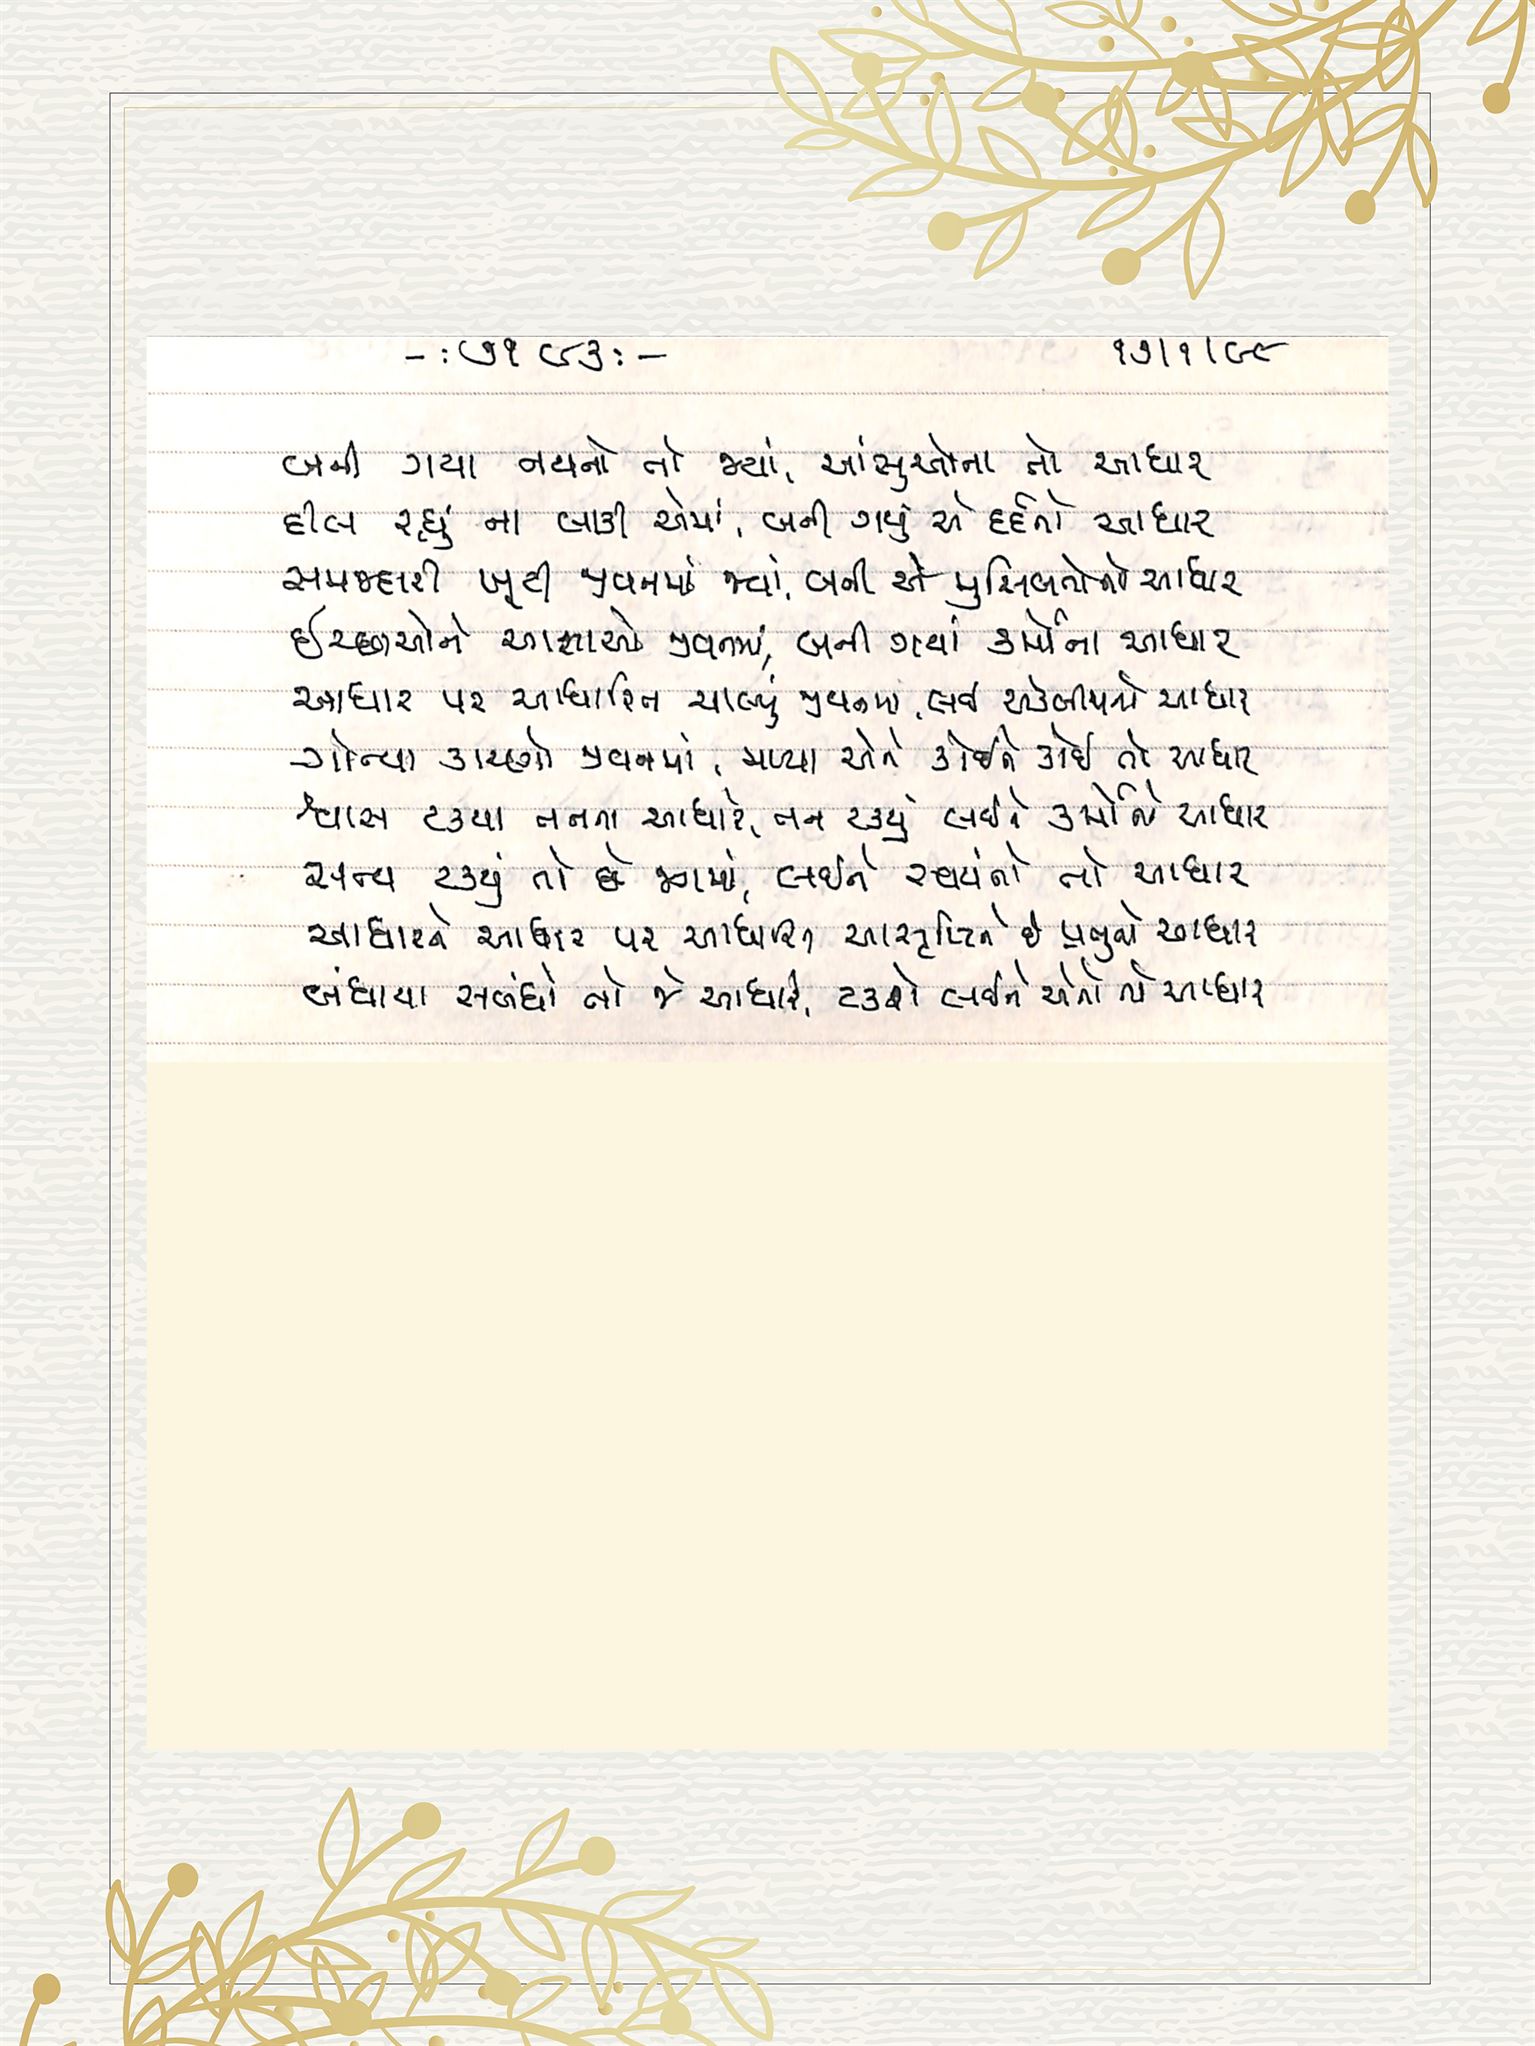 -:૭૧૯૩:- ૧૭/૧/૯૯
બની ગયા નયનો તો જ્યાં, આંસુઓના તો આધાર
દીલ રહ્યું ના બાકી એમાં, બની ગયું એ દર્દનો આધાર
સમજદારી ખૂટી જીવનમાં જ્યાં, બની એ મુસિબતોનો આધાર
ઈચ્છાઓને આશાઓ જીવનમાં, બની ગયાં કર્મોના આધાર
આધાર પર આધારિત ચાલ્યું જીવનમાં, લઈ એકબીજાનો આધાર
ગોત્યા કારણો જીવનમાં, મળ્યા એને કોઈને કોઈ તો આધાર
શ્વાસ ટક્યા તનના આધારે, તન ટક્યું લઈને કર્મોનો આધાર
સત્ય ટક્યું તો છે જગમાં, લઈને સ્વયંનો તો આધાર
આધારને આધાર પર આધારિત આ સૃષ્ટિને છે પ્રભુનો આધાર
બંધાયા સબંધો તો જે આધારે, ટકશે લઈને એનો એ આધાર